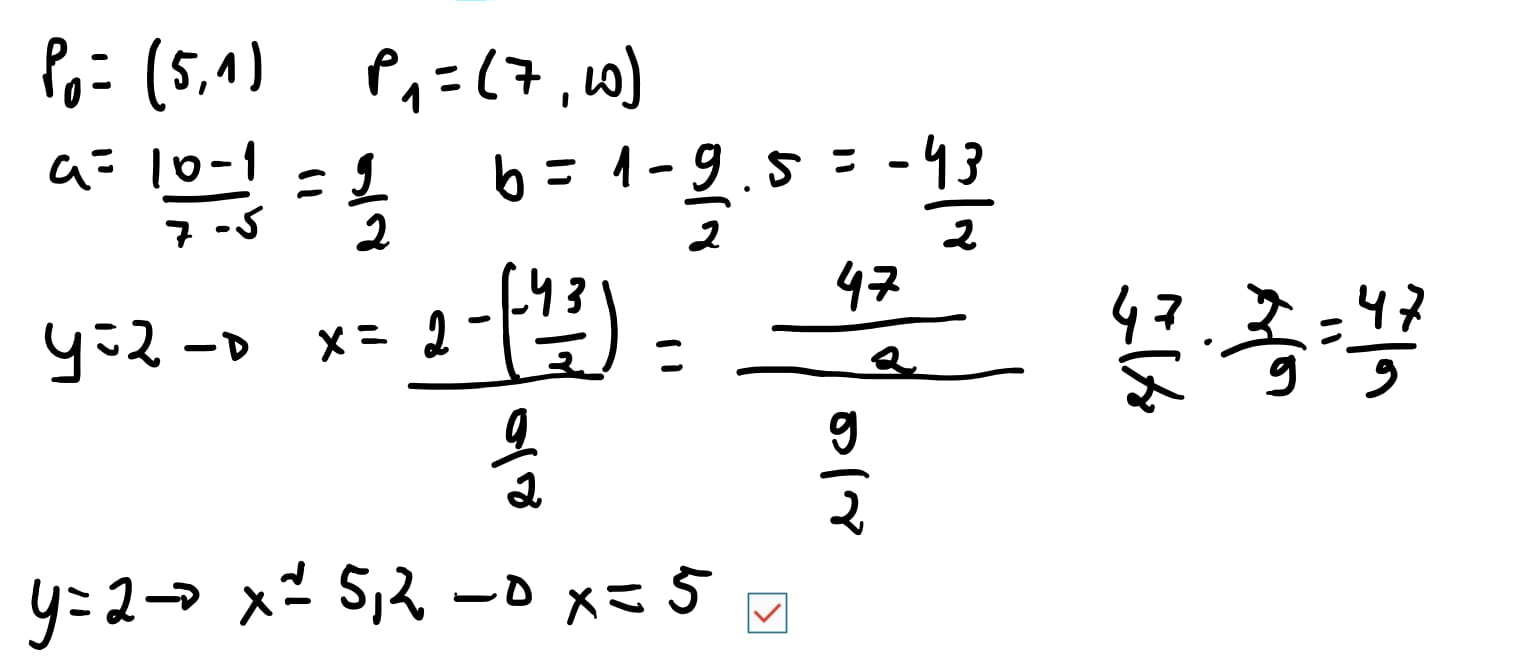 P₀ = (5,1) P₁ = (7,10)
a = (10-1)/(7-5) = 9/2 b = 1 - 9/2 . 5 = -43/2
y=2 → x = (2-(-43/2))/(9/2) = (47/2)/(9/2) 47/2 · 2/9 = 47/9
y=2 → x ≃ 5,2 → x = 5